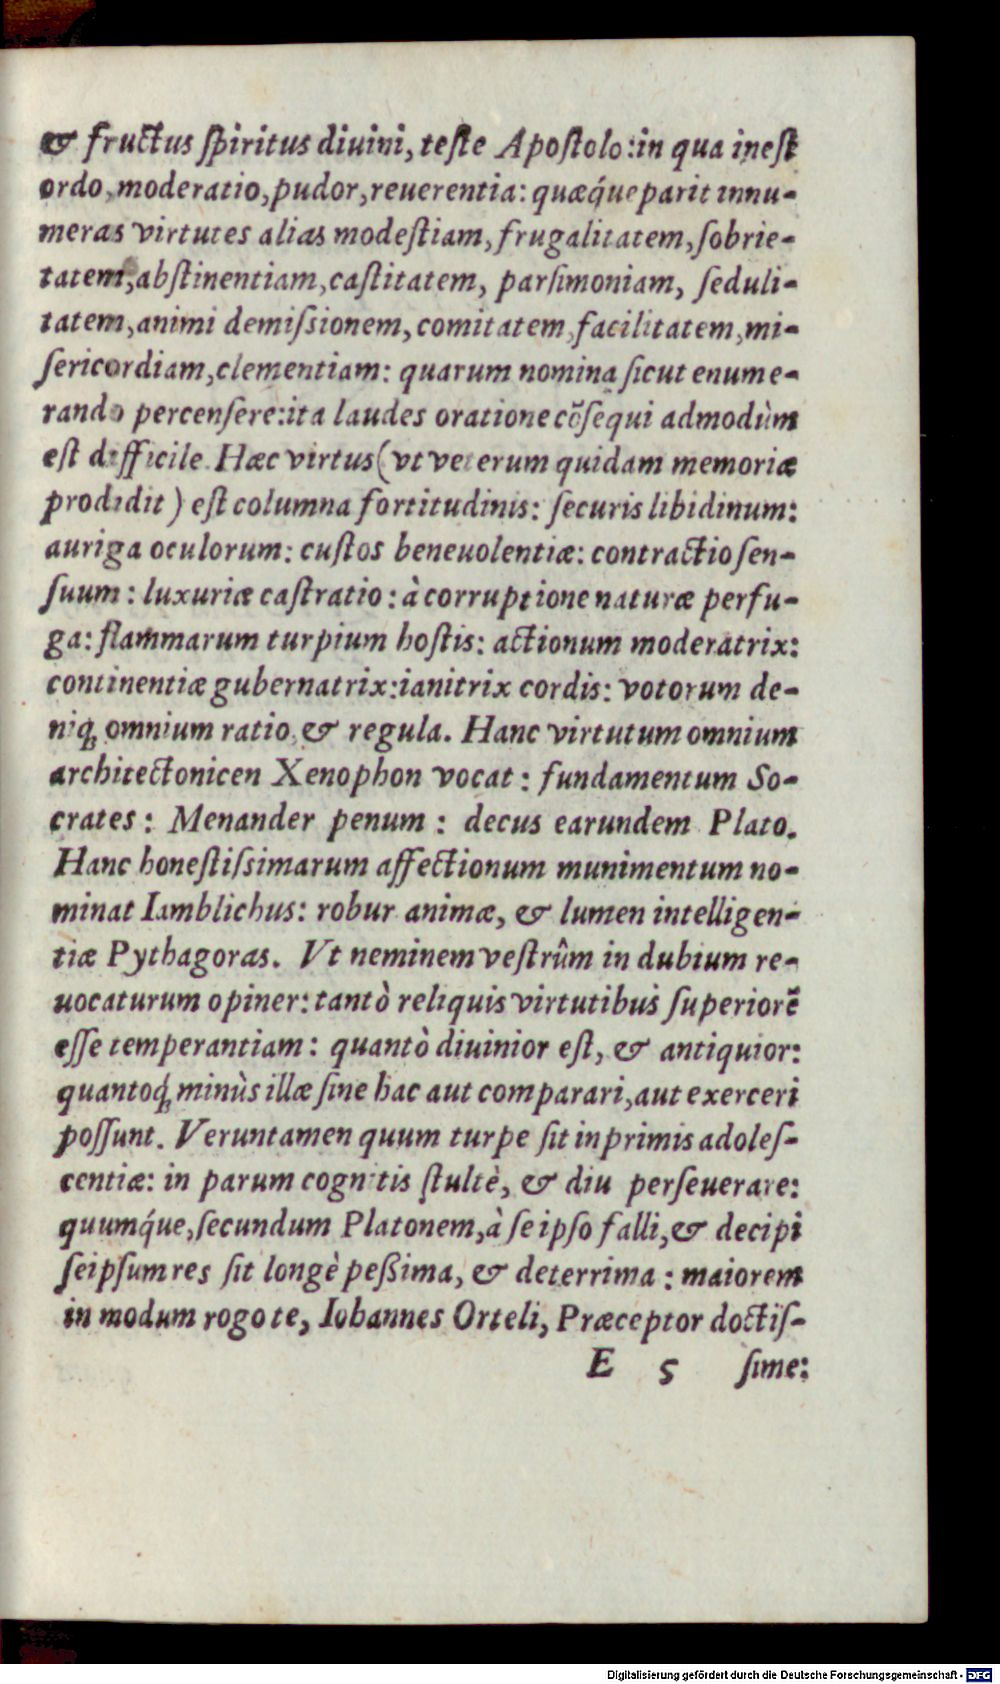 & fructus ſpiritus diuini, teſte Apoſtolo: in qua ineſt
ordo, moderatio, pudor, reuerentia: quæq́ue parit innu-
meras virtutes alias modeſtiam, frugalitatem, ſobrie-
tatem, abſtinentiam, caſtitatem, parſimoniam, ſeduli-
tatem, animi demiſsionem, comitatem, facilitatem, mi-
ſericordiam, clementiam: quarum nomina ſicut enume-
rando percenſere: ita laudes oratione cõſequi admodùm
eſt difficile. Hæc virtus (vt veterum quidam memoriæ
prodidit) eſt columna fortitudinis: ſecuris libidinum:
auriga oculorum: cuſtos beneuolentiæ: contractio ſen-
ſuum: luxuriæ caſtratio: à corruptione naturæ perfu-
ga: flammarum turpium hoſtis: actionum moderatrix:
continentiæ gubernatrix: ianitrix cordis: votorum de-
niq̃ omnium ratio, & regula. Hanc virtutum omnium
architectonicen Xenophon vocat: fundamentum So-
crates: Menander penum: decus earundem Plato.
Hanc honeſtiſsimarum affectionum munimentum no-
minat Iamblichus: robur animæ, & lumen intelligen-
tiæ Pythagoras. Vt neminem veſtrûm in dubium re-
uocaturum opiner: tantò reliquis virtutibus ſuperiorẽ
eſſe temperantiam: quantò diuinior eſt, & antiquior:
quantoq́ minùs illæ ſine hac aut comparari, aut exerceri
poſſunt. Veruntamen quum turpe ſit inprimis adoleſ-
centiæ: in parum cognitis ſtultè, & diu perſeuerare:
quumq́ue, ſecundum Platonem, à ſe ipſo falli, & decipi
ſeipſum res ſit longè peßima, & deterrima: maiorem
in modum rogo te, Iohannes Orteli, Præceptor doctiſ-
E 5 ſime:
Digitalisierung gefördert durch die Deutsche Forschungsgemeinschaft - DFG